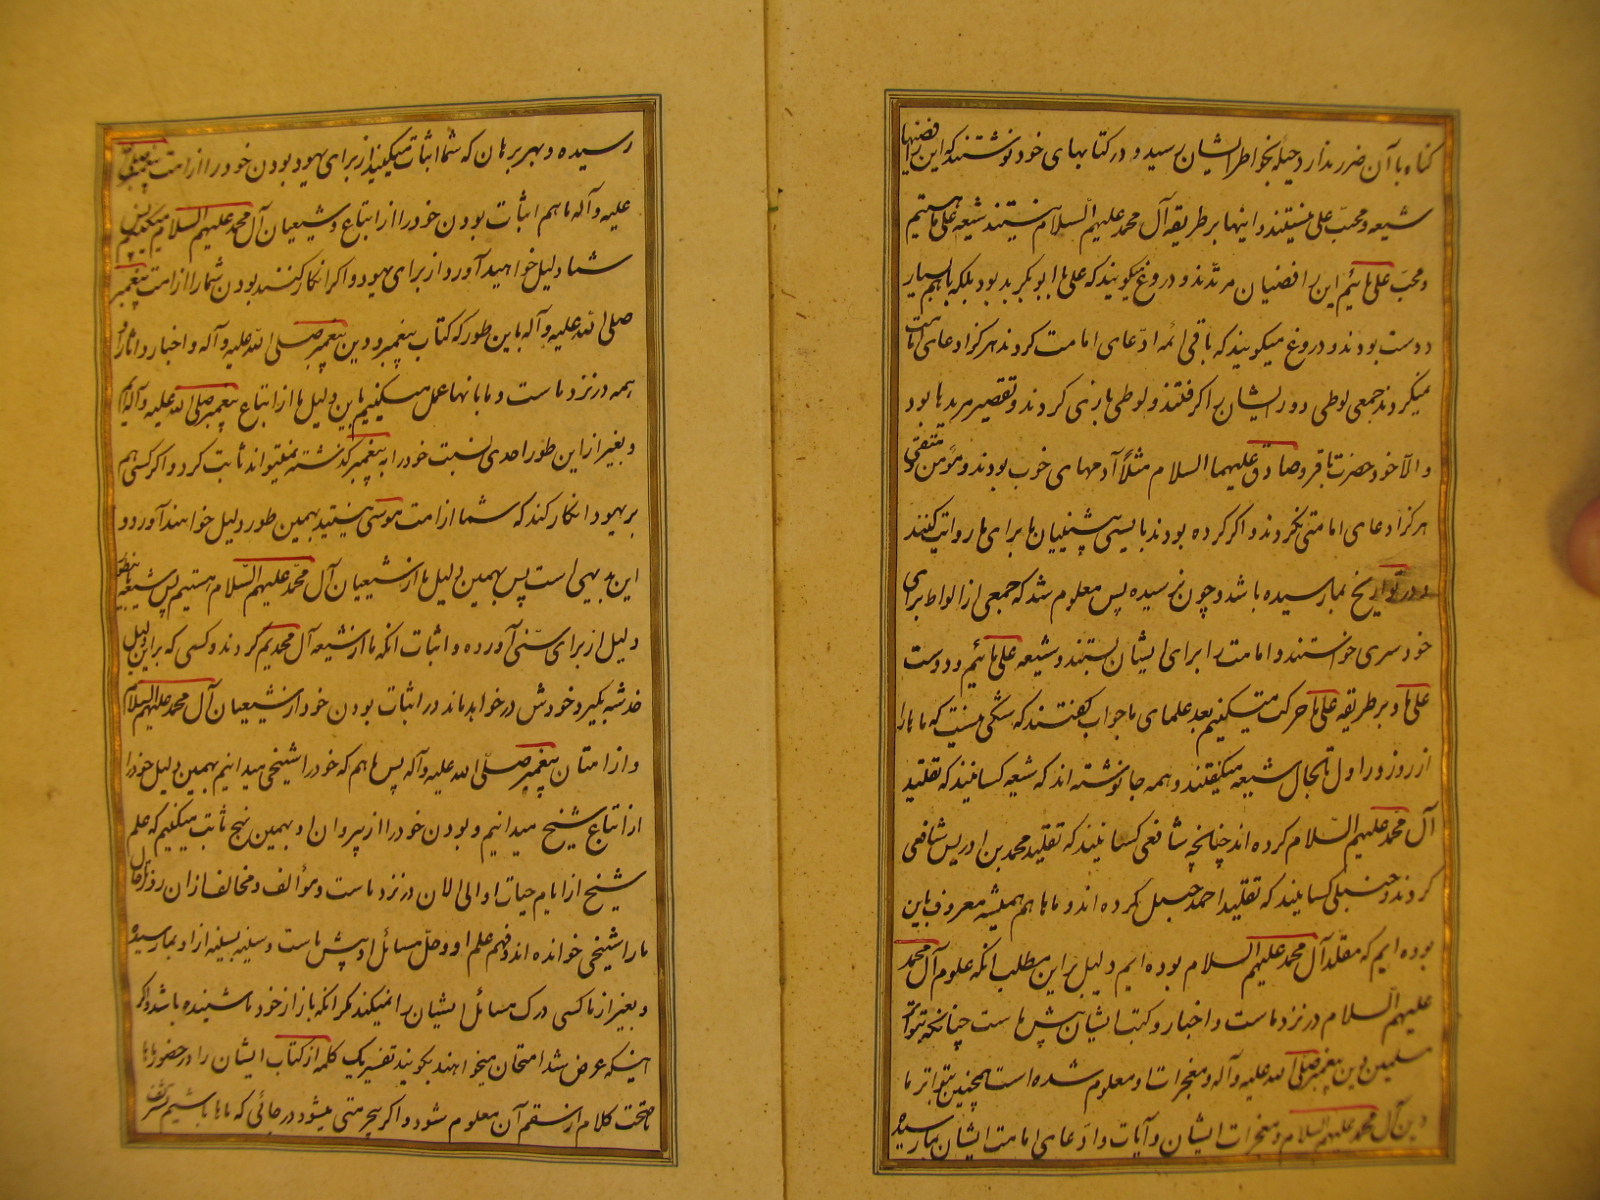 کناه با آن ضرر ندارد حیله بخواطر ایشان رسید و در کتابهای خود نوشتند که این رافضیها
شیعه و محبّ علی نیستند و اینها بر طریقه آل محمد علیهم السلام نیستند شیعه علی ما هستیم
و محبّ علی مائیم این رافضیان مرتدند و دروغ میکویند که علی با ابو بکر بد بود بلکه با هم بسیار
دوست بودند و دروغ میکویند که باقی ائمه ادّعای امامت کردند هرکز ادعای امامت
نمیکردند جمعی لوطی دور ایشان را کرفتند و لوطی بازی کردند و تقصیر مریدها بود
و الّا خود حضرت باقر و صادق علیهما السلام مثلاً آدمهای خوب بودند و مؤمن متقی
هرکز ادعای امامتی نکردند و اکر کرده بودند بایستی پیشینیان ما برای ما روایت کنند
و در تواریخ بما رسیده باشد و چون نرسیده پس معلوم شد که جمعی از الواط برای
خود سری خواستند و امامت را برای ایشان بستند و شیعه علی مائیم و دوست
علی ما و بر طریقه علی ما حرکت میکنیم بعد علمای ما جواب کفتند که شکی نیست که ما را
از روز اول تا بحال شیعه میکفتند و همه جا نوشته اند که شیعه کسانیند که تقلید
آل محمد علیهم السّلام کرده اند چنانچه شافعی کسانیند که تقلید محمد بن ادریس شافعی
کردند و حنبلی کسانیند که تقلید احمد حنبل کرده اند و ماها هم همیشه معروف باین
بوده ایم که مقلد آل محمد علیهم السلام بوده ایم و دلیل بر این مطلب انکه علوم آل محمد
علیهم السّلام در نزد ماست و اخبار و کتب ایشان پیش ماست چنانکه بتواتر
مسلمین دین پیغمبر صلی الله علیه و آله و معجزات او معلوم شده است همچنین بتواتر ما
دین آل محمد علیهم السلام و معجزات ایشان و آیات و ادّعای امامت ایشان بما رسیده
رسیده و بهر برهان که شما اثبات میکنید از برای یهود بودن خود را از امت پیغمبر صلی
علیه و آله ما هم اثبات بودن خود را از اتباع و شیعیان آل محمد علیهم السلام میکنیم پس
شما دلیل خواهید آورد از برای یهود و اکر انکار کنند بودن شما را از امت پیغمبر
صلی الله علیه و آله باین طور که کتاب پیغمبر و دین پیغمبر صلی الله علیه و آله و اخبار و آثار او
همه در نزد ماست و ما بانها عمل میکنیم باین دلیل ما از اتباع پیغمبر صلی الله علیه و آله ایم
و بغیر از این طور احدی نسبت خود را به پیغمبر کذشته نمیتواند ثابت کرد و اکر کسی هم
بر یهود انکار کند که شما از امت موسی نیستید بهمین طور دلیل خواهند آورد و
این بدیهی است پس بهمین دلیل ما از شیعیان آل محمّد علیهم السّلام هستیم پس شیعه
دلیل از برای سنّی آورده و اثبات انکه ما از شیعه آل محمدیم کردند و کسی که بر این دلیل
خدشه بکیرد خودش در خواهد ماند در اثبات بودن خود از شیعیان آل محمد علیهم السلام
و از امتان پیغمبر صلّی الله علیه و آله پس ما هم که خود را شیخی میدانیم بهمین دلیل خود را
از اتباع شیخ میدانیم و بودن خود را از پیروان او بهمین نهج ثابت میکنیم که علم
شیخ از ایام حیات او الی الان در نزد ماست و مؤالف و مخالف از ان روز تا حال
ما را شیخی خوانده اند و فهم علم او و حلّ مسائل او پیش ماست و سینه بسینه از او بما رسیده
و بغیر از ما کسی درک مسائل ایشان را نمیکند مکر انکه باز از خود ما شنیده باشد و اکر
اینکه عرض شد امتحان میخواهند بکویند تفسیر یک کلمه از کتاب ایشان را در حضور ماها
تا صحت کلام از سقم آن معلوم شود و اکر بیحرمتی میشود در جائی که ماها باشیم